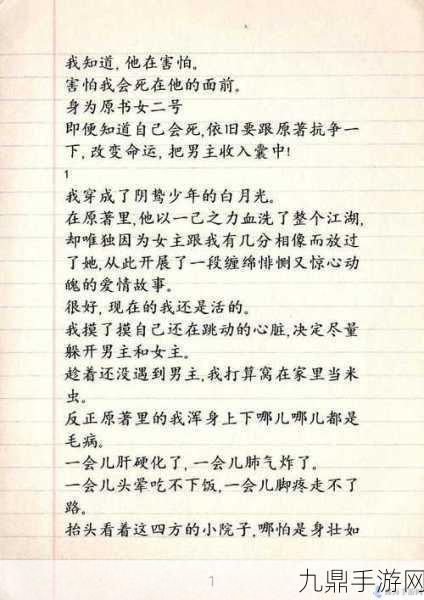 我知道,他在害怕。
害怕我会死在他的面前。
身为原书女二号
即便知道自己会死,依旧要跟原著抗争一
下,改变命运,把男主收入囊中!
1
我穿成了阴鸷少年的白月光。
在原著里,他以一己之力血洗了整个江湖,
却唯独因为女主跟我有几分相像而放过
了她,从此开展了一段缠绵悱恻又惊心动
魄的爱情故事。
很好,现在的我还是活的。
我摸了摸自己还在跳动的心脏,决定尽量
躲开男主和女主。
趁着还没遇到男主,我打算窝在家里当米
虫。
反正原著里的我浑身上下哪儿哪儿都是
毛病。
一会儿肝硬化了,一会儿肺气炸了。
一会儿头晕吃不下饭,一会儿脚疼走不了
路。
抬头看着这四方的小院子,哪怕是身壮如
1
九鼎手游网